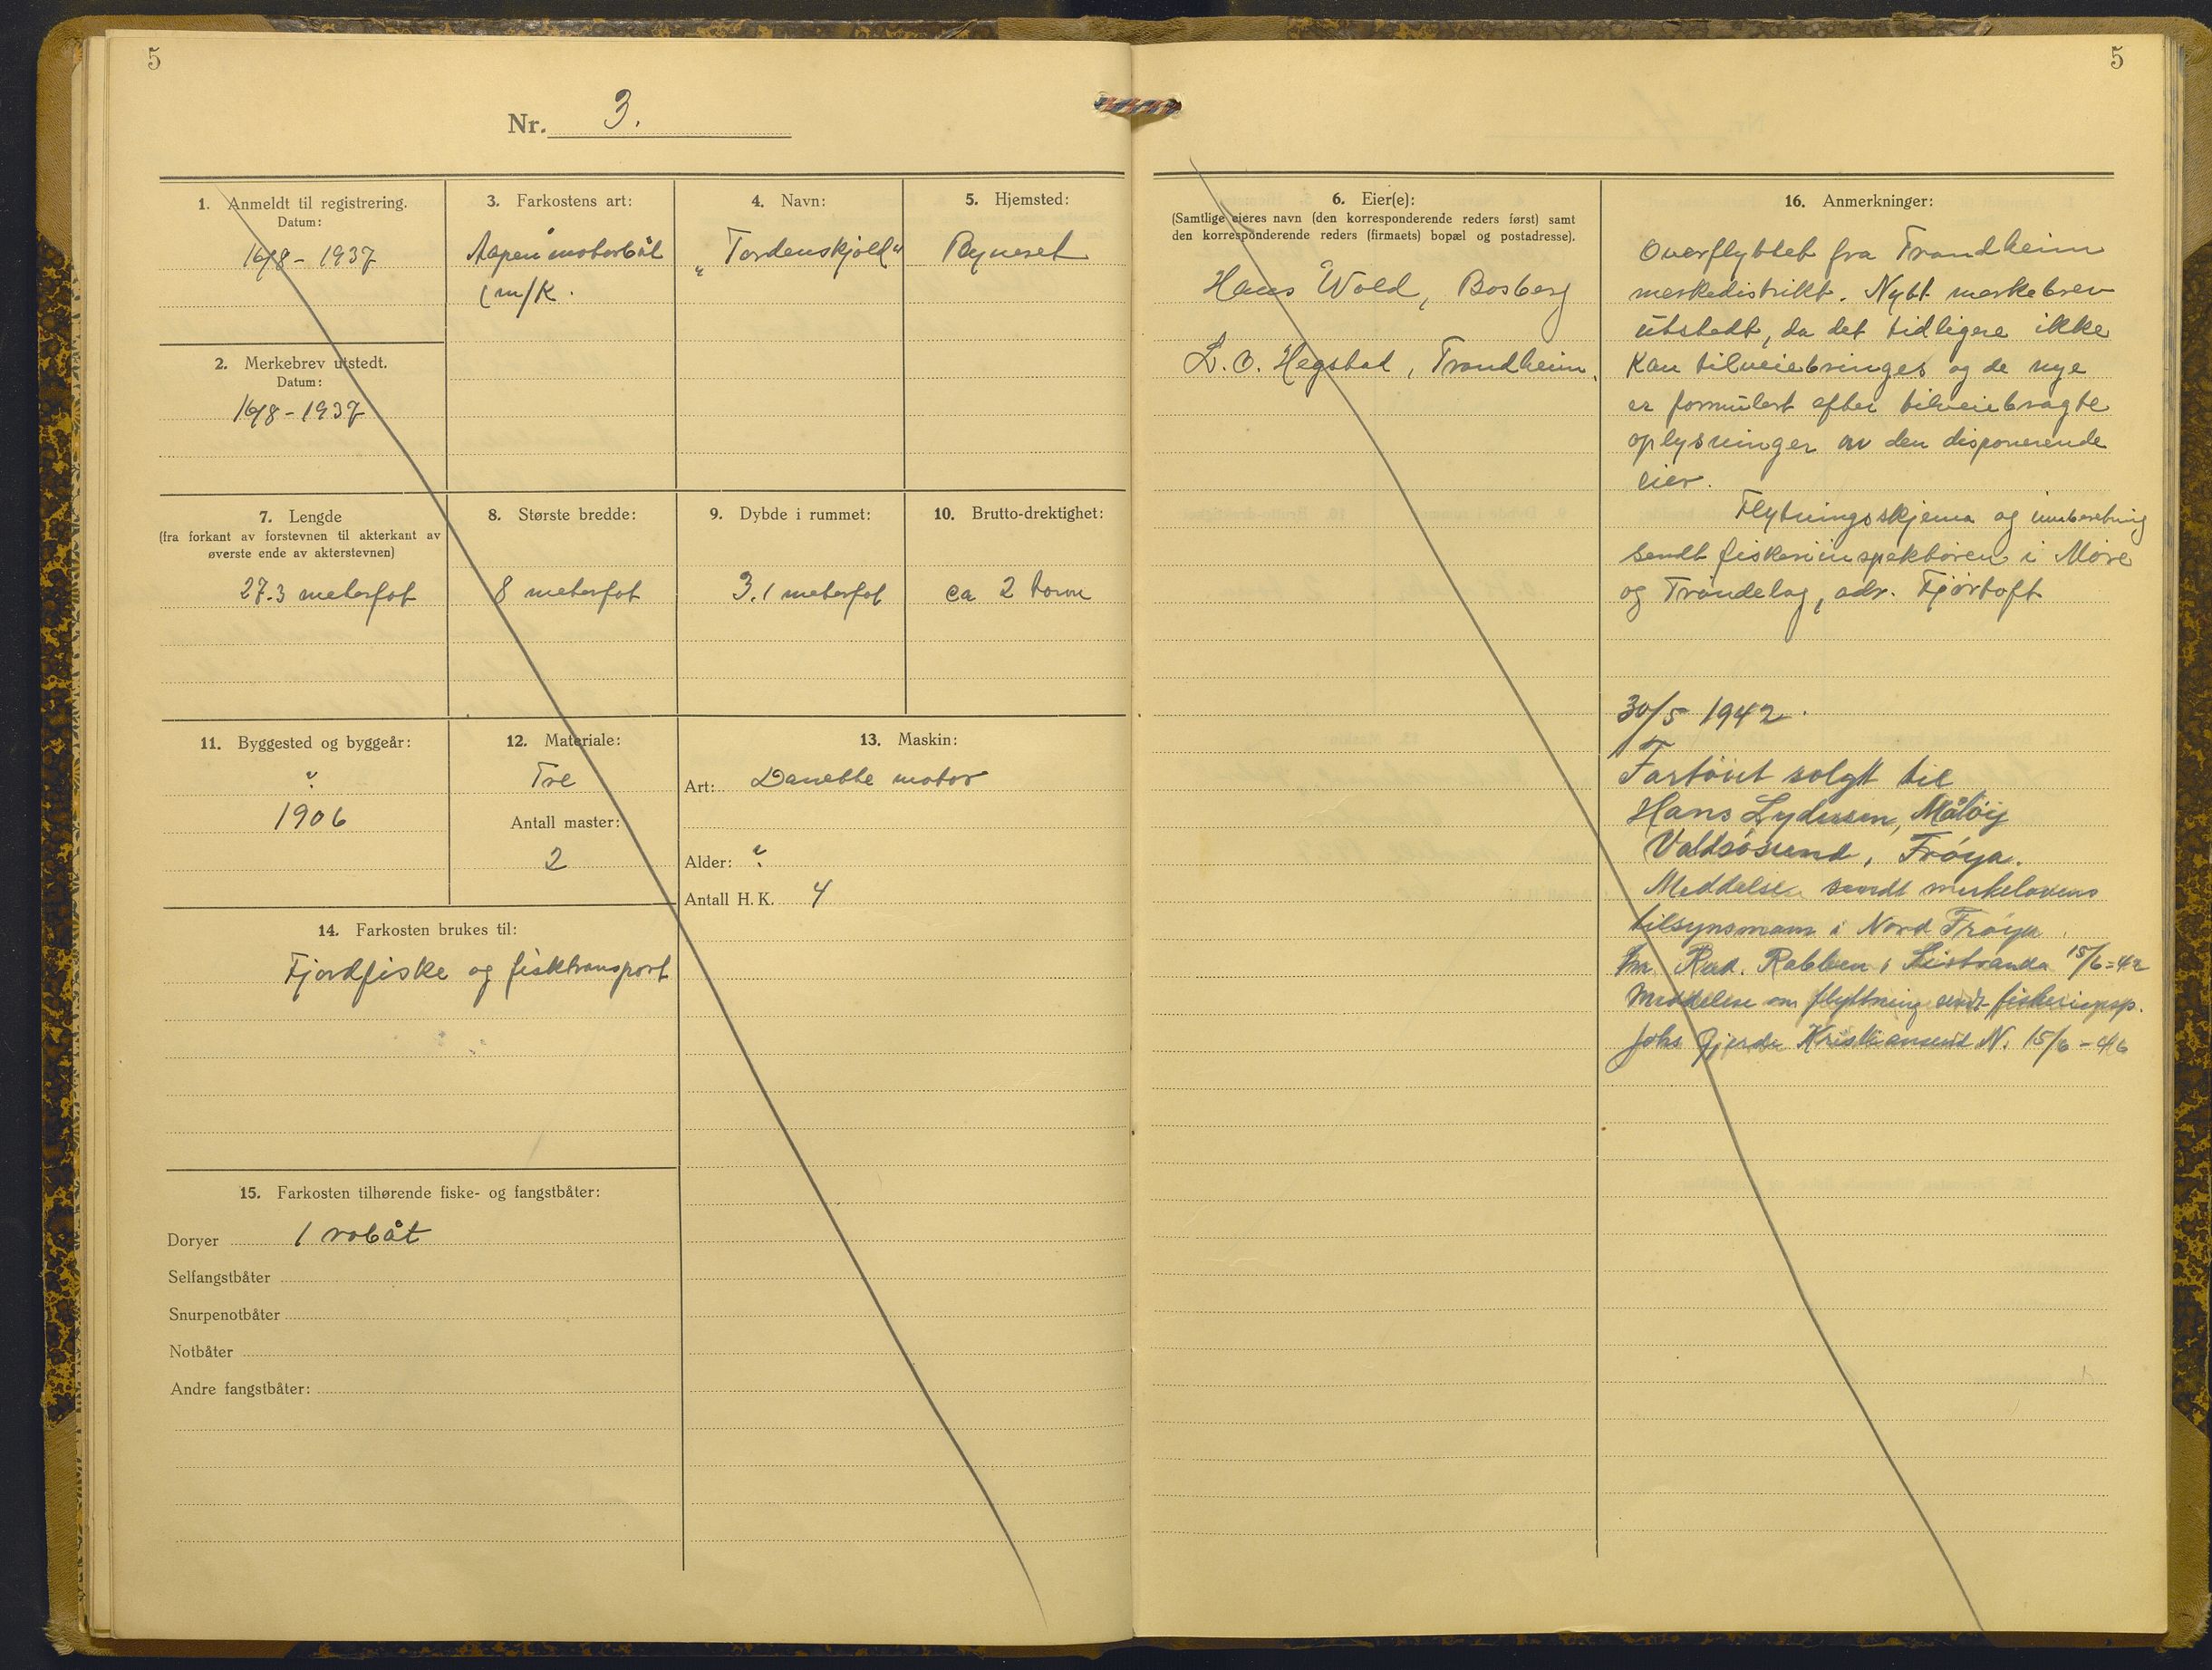 5
5
Nr. 3.
1. Anmeldt til registrering.
Datum:
16/8 - 1937
2. Merkebrev utstedt.
Datum:
16/8 - 1937
3. Farkostens art:
Aapen motorbåt
(m/K.
4. Navn:
"Tordenskjold"
5. Hjemsted:
Byneset
7. Lengde
(fra forkant av forstevnen til akterkant av
øverste ende av akterstevnen)
27.3 meterfot
8. Største bredde:
8 meterfot
9. Dybde i rummet:
3.1 meterfot
10. Brutto-drektighet:
ca 2 tonn
11. Byggested og byggeår:
?
1906
12. Materiale:
Tre
Antall master:
2
13. Maskin:
Art: Danette motor
Alder: ?
Antall H. K. 4
14. Farkosten brukes til:
Fjordfiske og fisktransport
15. Farkosten tilhørende fiske- og fangstbåter:
Doryer 1 robåt
Selfangstbåter
Snurpenotbåter
Notbåter
Andre fangstbåter:
6. Eier(e):
(Samtlige eieres navn (den korresponderende reders først) samt
den korresponderende reders (firmaets) bopæl og postadresse).
Hans Wold, Bosberg
L. O. Hegstad, Trondheim.
16. Anmerkninger:
Overflyttet fra Trondheim
merkedistrikt. Nytt merkebrev
utstedt, da det tidligere ikke
kan tilveiebringes og de nye
er formulert efter tilveiebragte
oplysninger av den disponerende
eier.
Flytningsskjema og innberetning
sendt fiskeriinspektøren i Møre
og Trøndelag, adr. Fjørtoft
30/5 1942.
Fartøiet solgt til
Hans Lydersen, Måøy
Valdsøsund, Frøya.
Meddelse sendt merkelovens
tilsynsmann i Nord Frøya
Rabben, Sistranda 15/6-42
Meddelse om flyttning sendt fiskeriinsp.
Johs Gjerde Kristiansund N. 15/6-46